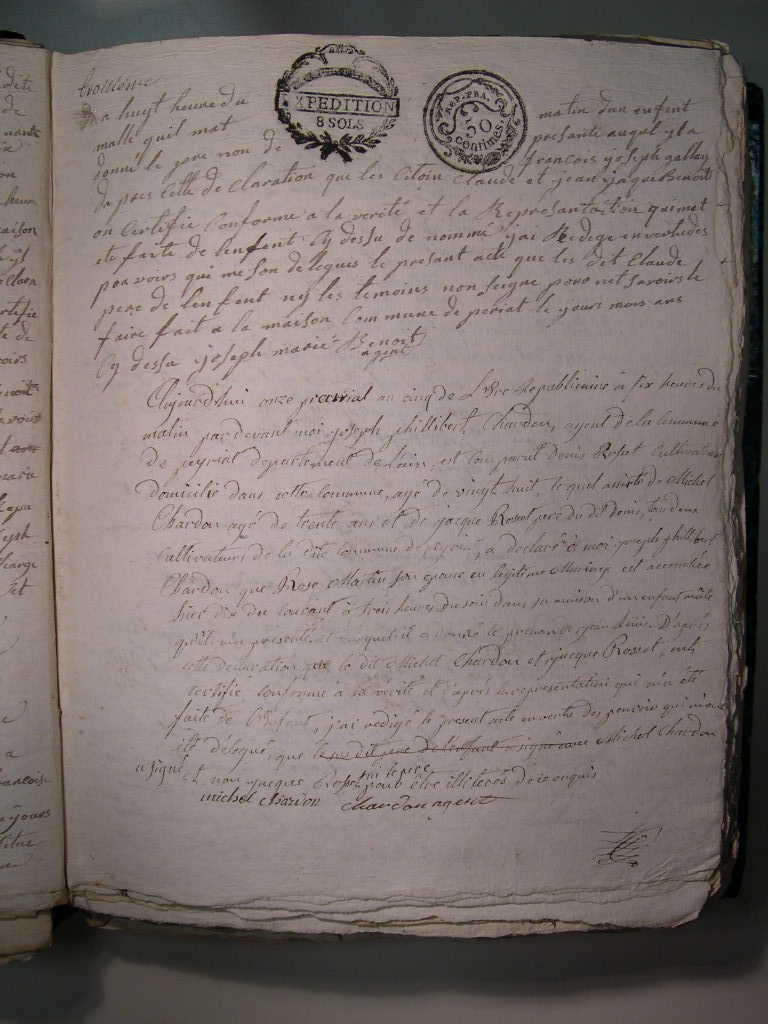 troisieme
EXPEDITION
8 SOLS
REP. FRA.
50
centimes.
a huyt heure du matin dun enfent
malle quil mat presante auqel yl a
donné le pare non de francois yseph
da pres celle de claration que les Citoin Claude et jean jaque Benoit
on Certifie Conforme a la verité et la Representastion quimat
ete faite de lenfent Cy dessu de nommé jai Redege
pouvoirs qui me son delegues le presant acte que les dit Claude
pere de lenfent ny les temoins non seigne pour net savoir le
faire fait a la maison Commune de periat le jours mois ans
Cy dessu joseph marie Benoit
agent
Aujourd'hui onze prairial an cinq de L'Ere Republicaine à six heures du
matin pardevant moi joseph phillibert Chardon, agent de la commune
de peyriat departement de Lain, est comparut Denis Rosset Cultivateur
Domicilié dans cette Commune, agé de vingt huit, le quel assisté de Michel
Chardon agé de trente ans et de jacque Rosset pere du dit Denis, tous deux
Cultivateurs de la dite Commune de peyriat, a declaré à moi joseph phillibert
Chardon que Rose Martin son epouse en legitime Mariage est accouchée
hier dix du courant à trois heures du soir dans sa maison d'un enfant mâle
qu'il m'a presenté et auquel il a donné le prenom de jean Denis. D'après
cette Declaration que le dit Michel Chardon et jacque Rosset, ont
certifié Conforme à la vérité et d'après la representation qui m'a été
faite de l'Enfant, j'ai redigé le present acte en vertu des pouvoir qui m'ont
été délegué, que le susdit pere de l'enfant a signé avec Michel Chardon
a signé et non jacque Rosset ni le pere pour être illiterés de ce enquis
michel chardon Chardon agent